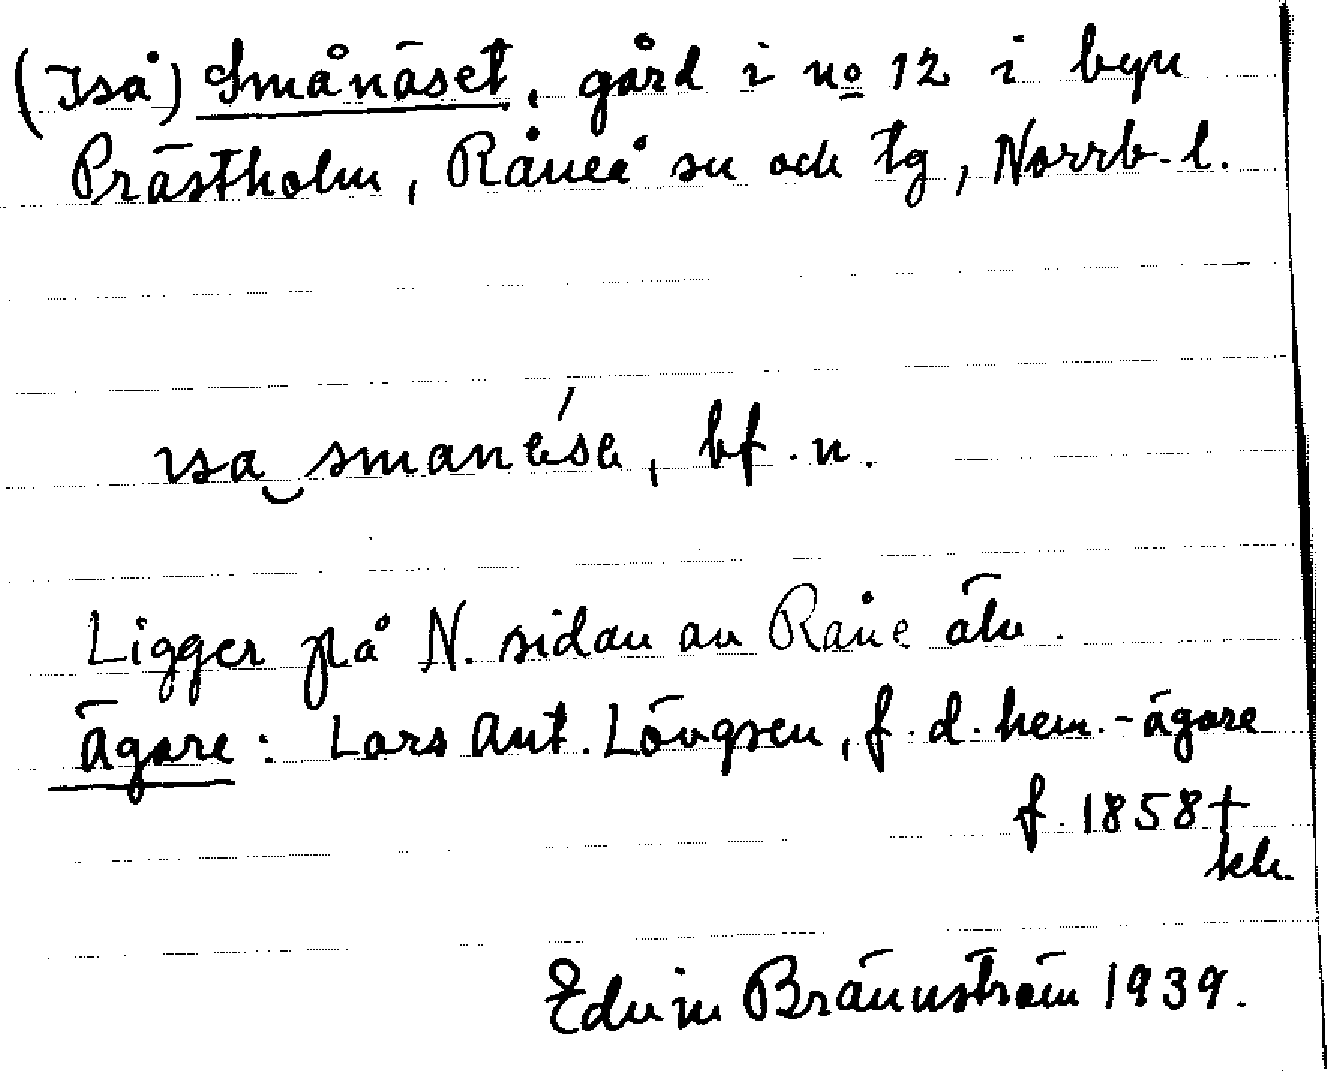 (Iså) Smånäset, gård i no 12 i byn
Prästholm, Råneå sn och tg, Norrb. l.
ɩsa‿smanésɛ, bf. n.
Ligger på N. sidan av Råne älv.
Ägare: Lars Ant. Lövgren, f. d. hem.-ägare
f. 1858 †
Edvin Brännström 1939.